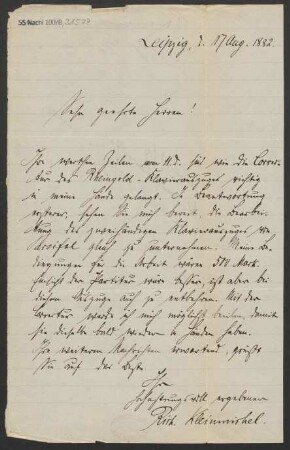 55 Nachl 100/B,
Leipzig, d. 17 Aug. 1882.
Sehr geehrte Herren!
Ihre werthen Zeilen vom 11. d. sind wie die Correc-
tur des Rheingold-Klavierauszuges richtig
in meine Hände gelangt. In Beantwortung
ersterer, sehen Sie mich bereit, die Bearbei-
tung des zweihändigen Klavierauszuges von
Parsifal gleich zu unternehmen! Meine Be-
dingungen für die Arbeit wären 500 Mark.
Hinsicht der Partitur wäre besser, ist aber bei
diesem Auszuge auch zu entbehren. Mit der
Correctur werde ich mich möglichst beeilen, damit
Sie dieselbe bald wieder in Händen haben.
Ihre weiteren Nachrichten erwartend, grüßt
Sie auf das Beste
Ihr
hochachtungsvoll ergebener
Rich. Kleinmichel.